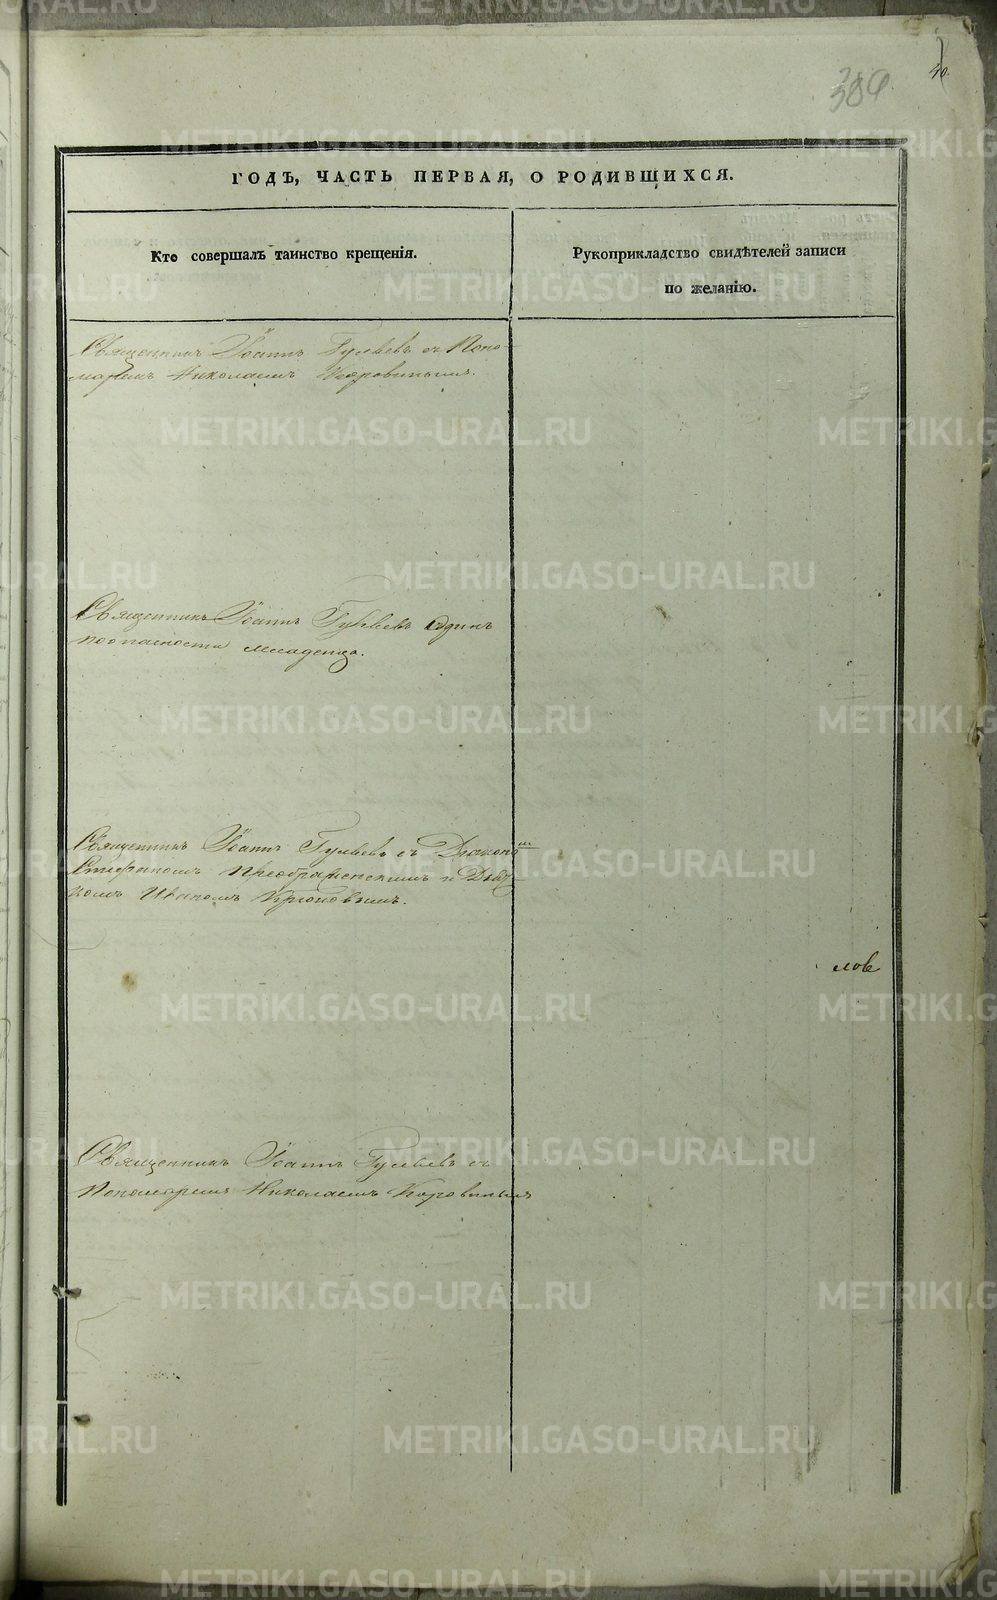 40.
386
ГОДЪ, ЧАСТЬ ПЕРВАЯ, О РОДИВШИХСЯ.
Кто совершалъ таинство крещенія.
Рукоприкладство свидѣтелей записи
по желанію.
Священникъ Іоаннъ Гуляевъ съ Поно-
маремъ Николаемъ Коровинымъ.
Священникъ Іоаннъ Гуляевъ одинъ
поопасности младенца.
Священникъ Іоаннъ Гуляевъ съ Діакономъ
Стефаномъ Преображенскимъ и Дьяч
комъ Иваномъ Крюковымъ.
лов
Священникъ Іоаннъ Гуляевъ съ
Пономаремъ Николаемъ Коровинымъ
METRIKI.GASO-URAL.RU